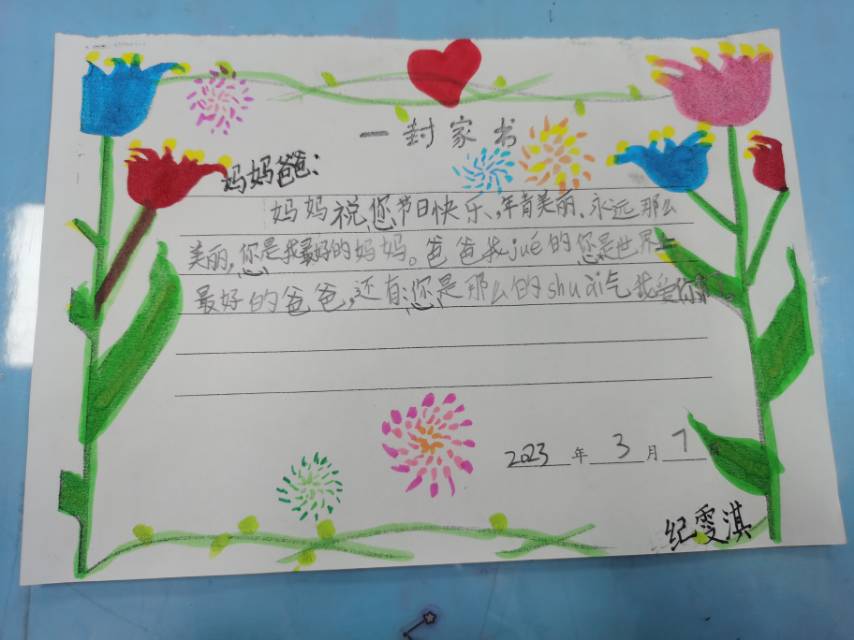 一封家书
妈妈爸爸:
妈妈祝您节日快乐,年青美丽、永远那么
美丽,您是我最好的妈妈。爸爸我jué的您是世界上
最好的爸爸,还有:您是那么的shuài气我爱你
2023年3月7
纪雯淇